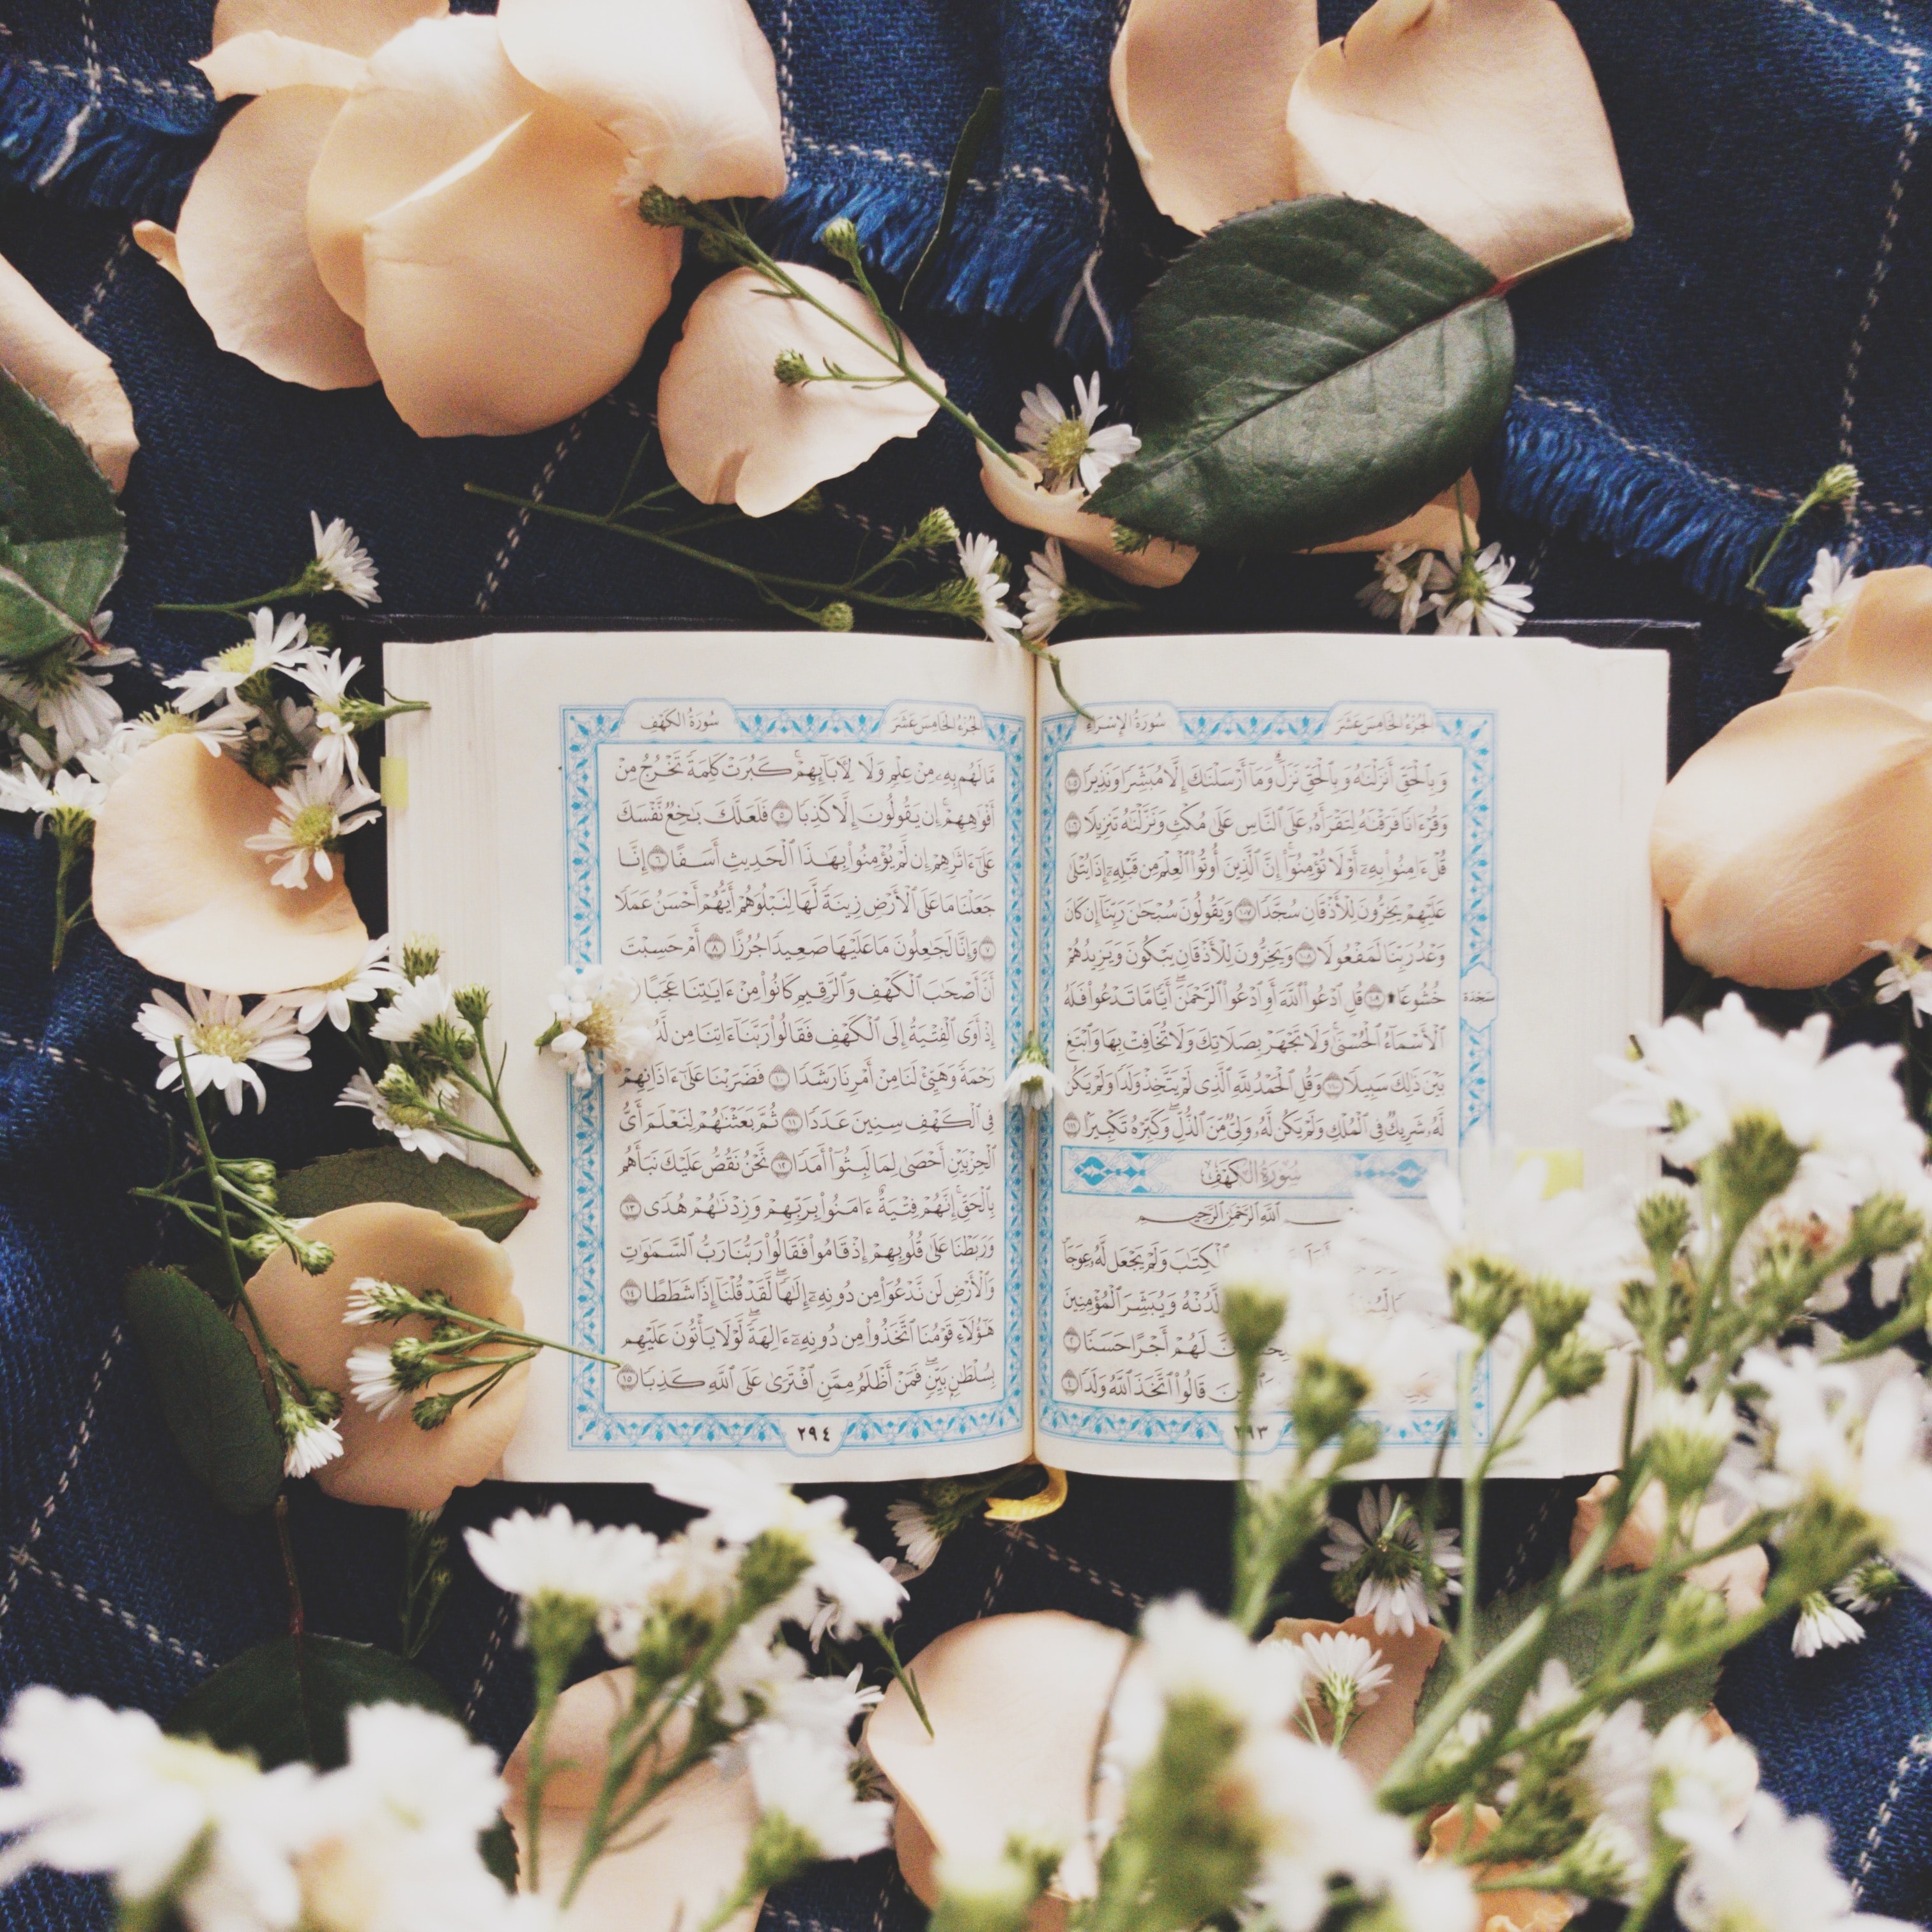 الجُزْءُ الخَامِسَ عَشَرَ
سُورَةُ الإِسْرَاءِ
وَبِٱلْحَقِّ أَنزَلْنَٰهُ وَبِٱلْحَقِّ نَزَلَ ۗ وَمَآ أَرْسَلْنَٰكَ إِلَّا مُبَشِّرًا وَنَذِيرًا ١٠٥
وَقُرْءَانًا فَرَقْنَٰهُ لِتَقْرَأَهُۥ عَلَى ٱلنَّاسِ عَلَىٰ مُكْثٍ وَنَزَّلْنَٰهُ تَنزِيلًا ١٠٦
قُلْ ءَامِنُوا۟ بِهِۦٓ أَوْ لَا تُؤْمِنُوٓا۟ ۚ إِنَّ ٱلَّذِينَ أُوتُوا۟ ٱلْعِلْمَ مِن قَبْلِهِۦٓ إِذَا يُتْلَىٰ
عَلَيْهِمْ يَخِرُّونَ لِلْأَذْقَانِ سُجَّدًا ١٠٧ وَيَقُولُونَ سُبْحَٰنَ رَبِّنَآ إِن كَانَ
وَعْدُ رَبِّنَا لَمَفْعُولًا ١٠٨ وَيَخِرُّونَ لِلْأَذْقَانِ يَبْكُونَ وَيَزِيدُهُمْ
خُشُوعًا ۩ ١٠٩ قُلِ ٱدْعُوا۟ ٱللَّهَ أَوِ ٱدْعُوا۟ ٱلرَّحْمَٰنَ ۖ أَيًّا مَّا تَدْعُوا۟ فَلَهُ
سَجْدَة
ٱلْأَسْمَآءُ ٱلْحُسْنَىٰ ۚ وَلَا تَجْهَرْ بِصَلَاتِكَ وَلَا تُخَافِتْ بِهَا وَٱبْتَغِ
بَيْنَ ذَٰلِكَ سَبِيلًا ١١٠ وَقُلِ ٱلْحَمْدُ لِلَّهِ ٱلَّذِى لَمْ يَتَّخِذْ وَلَدًا وَلَمْ يَكُن
لَّهُۥ شَرِيكٌ فِى ٱلْمُلْكِ وَلَمْ يَكُن لَّهُۥ وَلِىٌّ مِّنَ ٱلذُّلِّ ۖ وَكَبِّرْهُ تَكْبِيرًۢا ١١١
سُورَةُ الكَهْفِ
ٱللَّهِ ٱلرَّحْمَٰنِ ٱلرَّحِيمِ
ٱلْكِتَٰبَ وَلَمْ يَجْعَل لَّهُۥ عِوَجَا
لَّدُنْهُ وَيُبَشِّرَ ٱلْمُؤْمِنِينَ
لَهُمْ أَجْرًا حَسَنًا ٢
قَالُوا۟ ٱتَّخَذَ ٱللَّهُ وَلَدًا ٤
٢٩٣
الجُزْءُ الخَامِسَ عَشَرَ
سُورَةُ الكَهْفِ
مَّا لَهُم بِهِۦ مِنْ عِلْمٍ وَلَا لِـَٔابَآئِهِمْ ۚ كَبُرَتْ كَلِمَةً تَخْرُجُ مِنْ
أَفْوَٰهِهِمْ ۚ إِن يَقُولُونَ إِلَّا كَذِبًا ٥ فَلَعَلَّكَ بَٰخِعٌ نَّفْسَكَ
عَلَىٰٓ ءَاثَٰرِهِمْ إِن لَّمْ يُؤْمِنُوا۟ بِهَٰذَا ٱلْحَدِيثِ أَسَفًا ٦ إِنَّا
جَعَلْنَا مَا عَلَى ٱلْأَرْضِ زِينَةً لَّهَا لِنَبْلُوَهُمْ أَيُّهُمْ أَحْسَنُ عَمَلًا
٧ وَإِنَّا لَجَٰعِلُونَ مَا عَلَيْهَا صَعِيدًا جُرُزًا ٨ أَمْ حَسِبْتَ
أَنَّ أَصْحَٰبَ ٱلْكَهْفِ وَٱلرَّقِيمِ كَانُوا۟ مِنْ ءَايَٰتِنَا عَجَبًا
إِذْ أَوَى ٱلْفِتْيَةُ إِلَى ٱلْكَهْفِ فَقَالُوا۟ رَبَّنَآ ءَاتِنَا مِن
رَحْمَةً وَهَيِّئْ لَنَا مِنْ أَمْرِنَا رَشَدًا ١٠ فَضَرَبْنَا عَلَىٰٓ ءَاذَانِهِمْ
فِى ٱلْكَهْفِ سِنِينَ عَدَدًا ١١ ثُمَّ بَعَثْنَٰهُمْ لِنَعْلَمَ أَىُّ
ٱلْحِزْبَيْنِ أَحْصَىٰ لِمَا لَبِثُوٓا۟ أَمَدًا ١٢ نَّحْنُ نَقُصُّ عَلَيْكَ نَبَأَهُم
بِٱلْحَقِّ ۚ إِنَّهُمْ فِتْيَةٌ ءَامَنُوا۟ بِرَبِّهِمْ وَزِدْنَٰهُمْ هُدًى ١٣
وَرَبَطْنَا عَلَىٰ قُلُوبِهِمْ إِذْ قَامُوا۟ فَقَالُوا۟ رَبُّنَا رَبُّ ٱلسَّمَٰوَٰتِ
وَٱلْأَرْضِ لَن نَّدْعُوَا۟ مِن دُونِهِۦٓ إِلَٰهًا ۖ لَّقَدْ قُلْنَآ إِذًا شَطَطًا ١٤
هَٰٓؤُلَآءِ قَوْمُنَا ٱتَّخَذُوا۟ مِن دُونِهِۦٓ ءَالِهَةً ۖ لَّوْلَا يَأْتُونَ عَلَيْهِم
بِسُلْطَٰنٍۭ بَيِّنٍ ۖ فَمَنْ أَظْلَمُ مِمَّنِ ٱفْتَرَىٰ عَلَى ٱللَّهِ كَذِبًا ١٥
٢٩٤